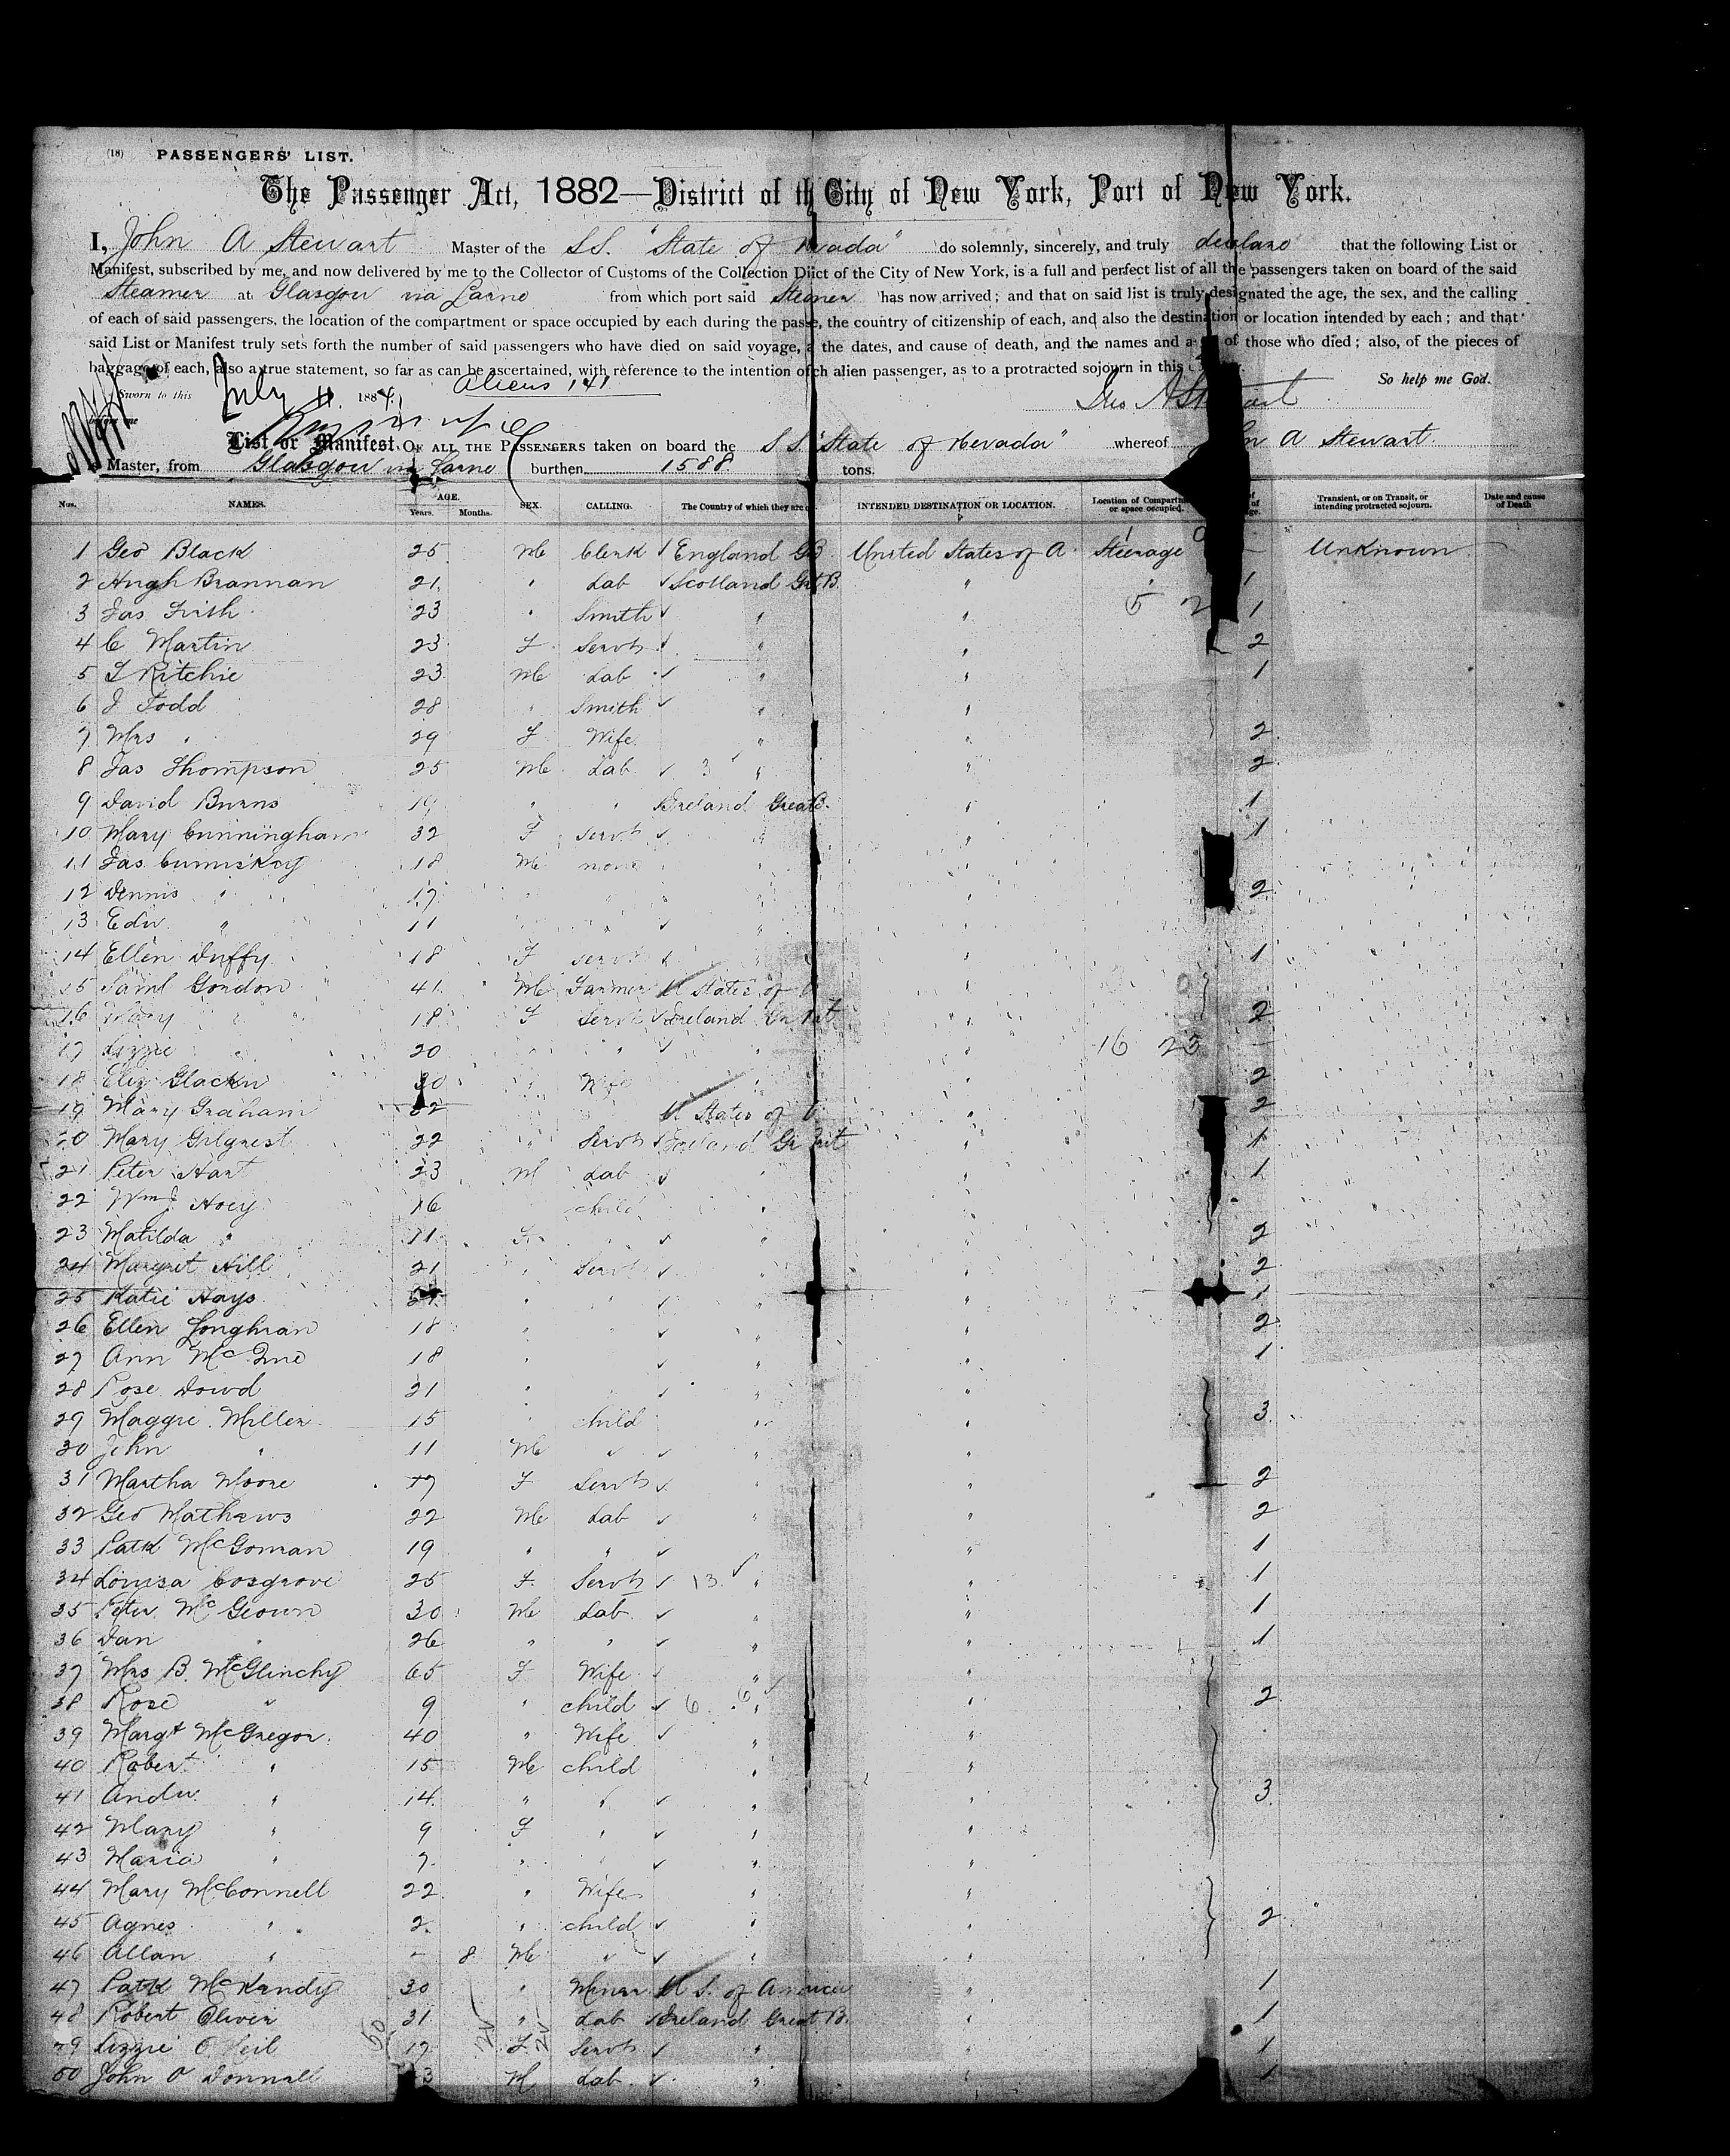 (18) PASSENGERS' LIST.
The Passenger Act, 1882—District of th City of New York, Port of New York.
I, John A Stewart Master of the S.S. "State of Nevada" do solemnly, sincerely, and truly declare that the following List or
Manifest, subscribed by me, and now delivered by me to the Collector of Customs of the Collection Diict of the City of New York, is a full and perfect list of all the passengers taken on board of the said
Steamer at Glasgow via Larne from which port said Steamer has now arrived; and that on said list is truly designated the age, the sex, and the calling
of each of said passengers, the location of the compartment or space occupied by each during the passe, the country of citizenship of each, and also the destination or location intended by each; and that
said List or Manifest truly sets forth the number of said passengers who have died on said voyage, the dates, and cause of death, and the names and a of those who died; also, of the pieces of
baggage of each, also a true statement, so far as can be ascertained, with reference to the intention of ch alien passenger, as to a protracted sojourn in this
So help me God.
Sworn to this July 11. 1884 Aliens 141
before me
Jno A Stewart
List or Manifest OF ALL THE PASSENGERS taken on board the S.S. "State of Nevada" whereof John A Stewart
is Master, from Glasgow via Larne burthen 1588 tons.
Nos. NAMES. AGE. Years. Months. SEX. CALLING. The Country of which they are INTENDED DESTINATION OR LOCATION. Location of Compartm or space occupied. Transient, or on Transit, or intending protracted sojourn. Date and cause of Death
1 Geo Black 25 M Clerk England GB United States of A Steerage - Unknown
2 Hugh Brannan 21 " Lab Scotland Gt B. " " 1
3 Jas Frith 23 " Smith " " 5 2 1
4 C Martin 23 F Servt " " 2
5 T Ritchie 23 M Lab " " 1
6 J Todd 28 " Smith " "
7 Mrs " 29 F Wife " " 2
8 Jas Thompson 25 M Lab 3 " " 2
9 David Burns 19 " " Ireland Great B. " 1
10 Mary Cunningham 32 F Servt " " 1
11 Jas Cumiskey 18 M none " "
12 Dennis " 17 " " " " 2
13 Edw " 11 " " " "
14 Ellen Duffy 18 F servt " " 1
15 Saml Gordon 41 M Farmer U States of "
16 Mary " 18 F Servt Ireland Gr Brit " 2
17 Lizzie " 20 " " " " 16 23 -
18 Eliz Glackn 30 " Wife " " 2
19 Mary Graham 22 " " U States of " 2
20 Mary Gilgrest 22 " Servt Ireland Gr Brit " 1
21 Peter Hart 23 M Lab " " 1
22 Wm J Hoey 16 child " "
23 Matilda " 11 F " " " 2
24 Margret Hill 21 " Servt " 2
25 Katie Hays " " " " 1
26 Ellen Loughran 18 " " " " 2
27 Ann 18 " " " 1
28 Rose Dowd 21 " " " "
29 Maggie Miller 15 " child " " 3
30 John " 11 M " " "
31 Martha Moore 17 F Servt " " 2
32 Geo Mathews 22 M Lab " " 2
33 Patk McGorman 19 " " " " 1
34 Louisa Cosgrove 25 F. Servt 13 " " 1
35 Peter McGeown 30 M Lab " " 1
36 Dan " 26 " " " " 1
37 Mrs B. McGlinchy 65 F Wife " "
38 Rose " 9 " child 6 6 " " 2
39 Margt McGregor 40 " Wife " "
40 Robert " 15 M child " "
41 Andw. " 14 " " " " 3
42 Mary " 9 F " " "
43 Maria " 7 " " " "
44 Mary McConnell 22 " Wife " "
45 Agnes " 2 " child " " 2
46 Allan " - 8 M " " "
47 Patk McKendy 30 " Miner U S. of America " 1
48 Robert Oliver 31 " Lab Ireland Great B. " 1
49 Lizzie O Neil 17 F Servt " " 1
50 John O Donnell 3 M Lab " " 1